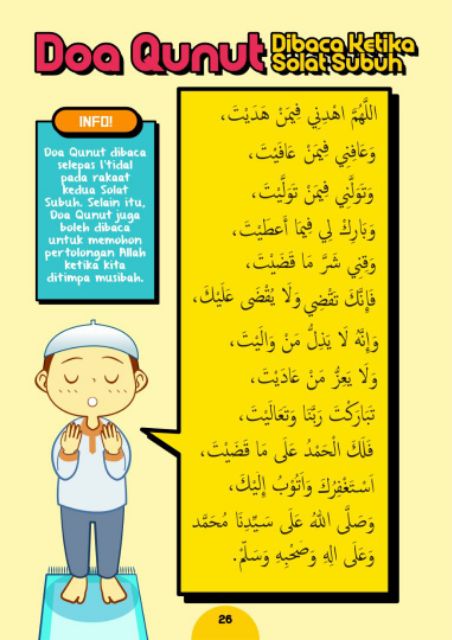 Doa Qunut Dibaca Ketika
Solat Subuh
INFO!
Doa Qunut dibaca
selepas I'tidal
pada rakaat
kedua Solat
Subuh. Selain itu,
Doa Qunut juga
boleh dibaca
untuk memohon
pertolongan Allah
ketika kita
ditimpa musibah.
اللَّهُمَّ اهْدِنِي فِيمَنْ هَدَيْتَ،
وَعَافِنِي فِيمَنْ عَافَيْتَ،
وَتَوَلَّنِي فِيمَنْ تَوَلَّيْتَ،
وَبَارِكْ لِي فِيمَا أَعطَيْتَ،
وَقِنِي شَرَّ مَا قَضَيْتَ،
فَإِنَّكَ تَقْضِي وَلَا يُقْضَى عَلَيْكَ،
وَإِنَّهُ لَا يَذِلُّ مَنْ وَالَيْتَ،
وَلَا يَعِزُّ مَنْ عَادَيْتَ،
تَبَارَكْتَ رَبَّنَا وَتَعَالَيْتَ،
فَلَكَ الْحَمْدُ عَلَى مَا قَضَيْتَ،
اَسْتَغْفِرُكَ وَاَتُوْبُ إِلَيْكَ،
وَصَلَّى اللهُ عَلَى سَيِّدِنَا مُحَمَّد
وَعَلَى الِهِ وَصَحْبِهِ وَسَلَّمْ.
26